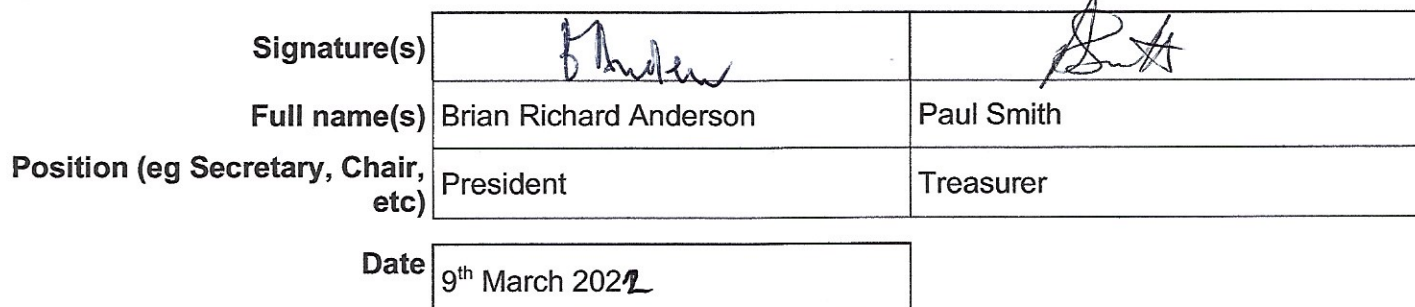 Signature(s)
Full name(s) Brian Richard Anderson Paul Smith
Position (eg Secretary, Chair, etc) President Treasurer
Date 9th March 2022